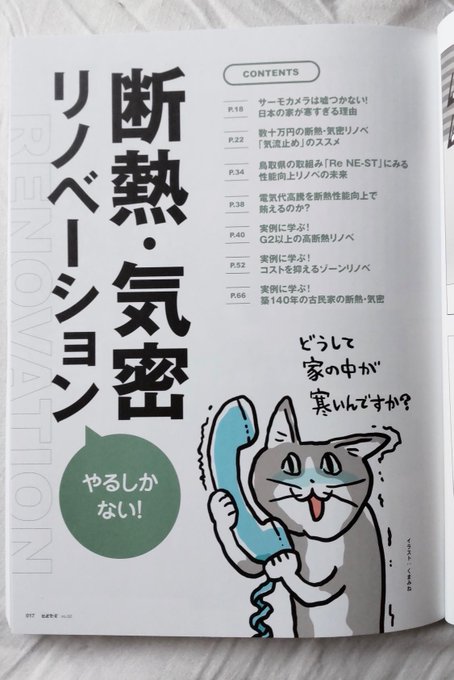 断熱・気密
リノベーション
RENOVATION
やるしか
ない!
CONTENTS
P.18
サーモカメラは嘘つかない!
日本の家が寒すぎる理由
P.22
数十万円の断熱・気密リノベ
「気流止め」のススメ
P.34
鳥取県の取組み「Re NE-ST」にみる
性能向上リノベの未来
P.38
電気代高騰を断熱性能向上で
賄えるのか?
P.40
実例に学ぶ!
G2以上の高断熱リノベ
P.52
実例に学ぶ!
コストを抑えるゾーンリノベ
P.66
実例に学ぶ!
築140年の古民家の断熱・気密
どうして
家の中が
寒いんですか?
イラスト:くまみね
017